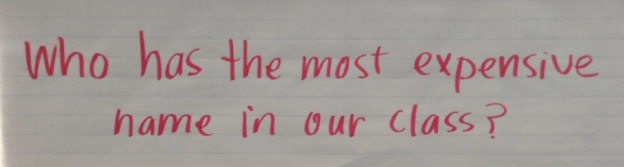 Who has the most expensive
name in our class?